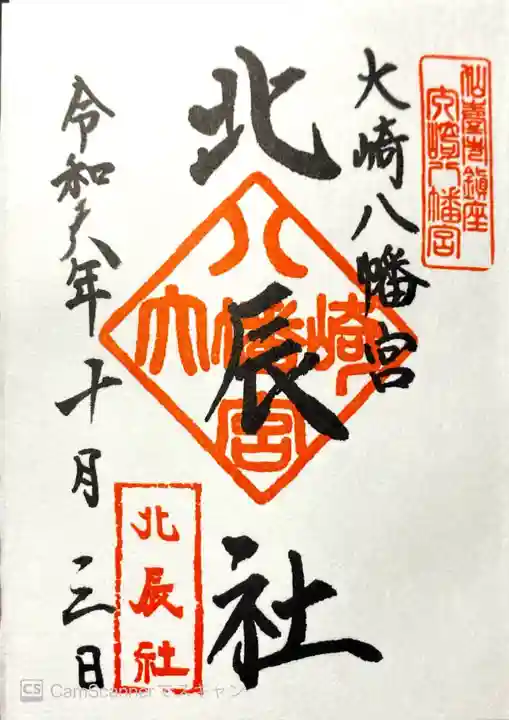 仙臺市鎮座
大崎八幡宮
大崎八幡宮
北辰社
八
大幡崎
宮
令和六年十月三日
北辰社
CS CamScannerでスキャン